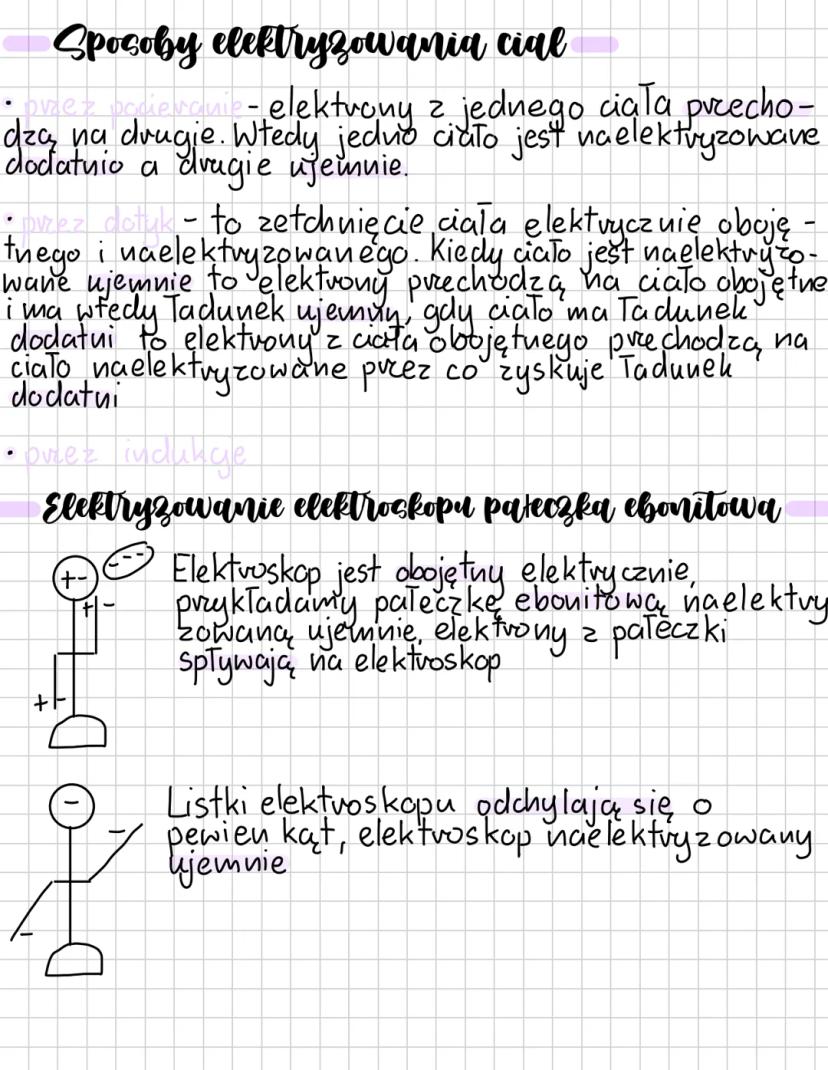 Sposoby elektryzowania ciał
• przez pocieranie - elektrony z jednego ciała przecho-
dzą na drugie. Wtedy jedno ciało jest naelektryzowane
dodatnio a drugie ujemnie.
• przez dotyk - to zetchnięcie ciała elektrycznie oboję -
tnego i naelektryzowanego. Kiedy ciało jest naelektryzo-
wane ujemnie to elektrony przechodzą na ciało obojętne
i ma wtedy ładunek ujemny, gdy ciało ma ładunek
dodatni to elektrony z ciała obojętnego przechodzą na
ciało naelektryzowane przez co zyskuje ładunek
dodatni
• przez indukcje
Elektryzowanie elektroskopu pałeczką ebonitową
+- ---
Elektroskop jest obojętny elektrycznie,
+ -
przykładamy pałeczkę ebonitową naelektry
zowaną ujemnie, elektrony z pałeczki
spływają na elektroskop
+ -
-
Listki elektroskopu odchylają się o
-
pewien kąt, elektroskop naelektryzowany
ujemnie
-